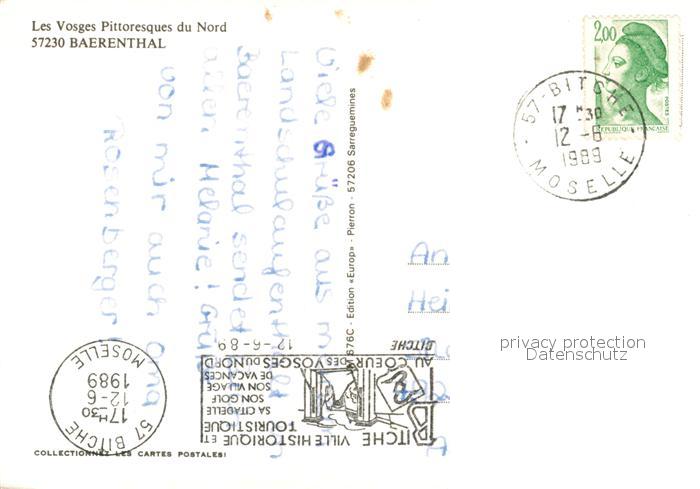 Les Vosges Pittoresques du Nord
57230 BAERENTHAL
2,00
POSTES
REPUBLIQUE FRANCAISE
57-BITCHE
17 H 30
12 -6
1989
MOSELLE
Viele Grüße aus m
Landschulaufenthalt
Baerenthal sendet
allen, Melanie! Grüße
von mir auch Oma
Rosenberger
Pierron - 57206 Sarreguemines
Edition «Europ»
An
Hei
privacy protection
Datenschutz
BITCHE
12-6-89
AU COEUR DES VOSGES DU NORD
BITCHE VILLE HISTORIQUE ET
TOURISTIQUE
SA CITADELLE
SON GOLF
SON VILLAGE
DE VACANCES
57 BITCHE
17H30
12-6
1989
MOSELLE
COLLECTIONNEZ LES CARTES POSTALES!